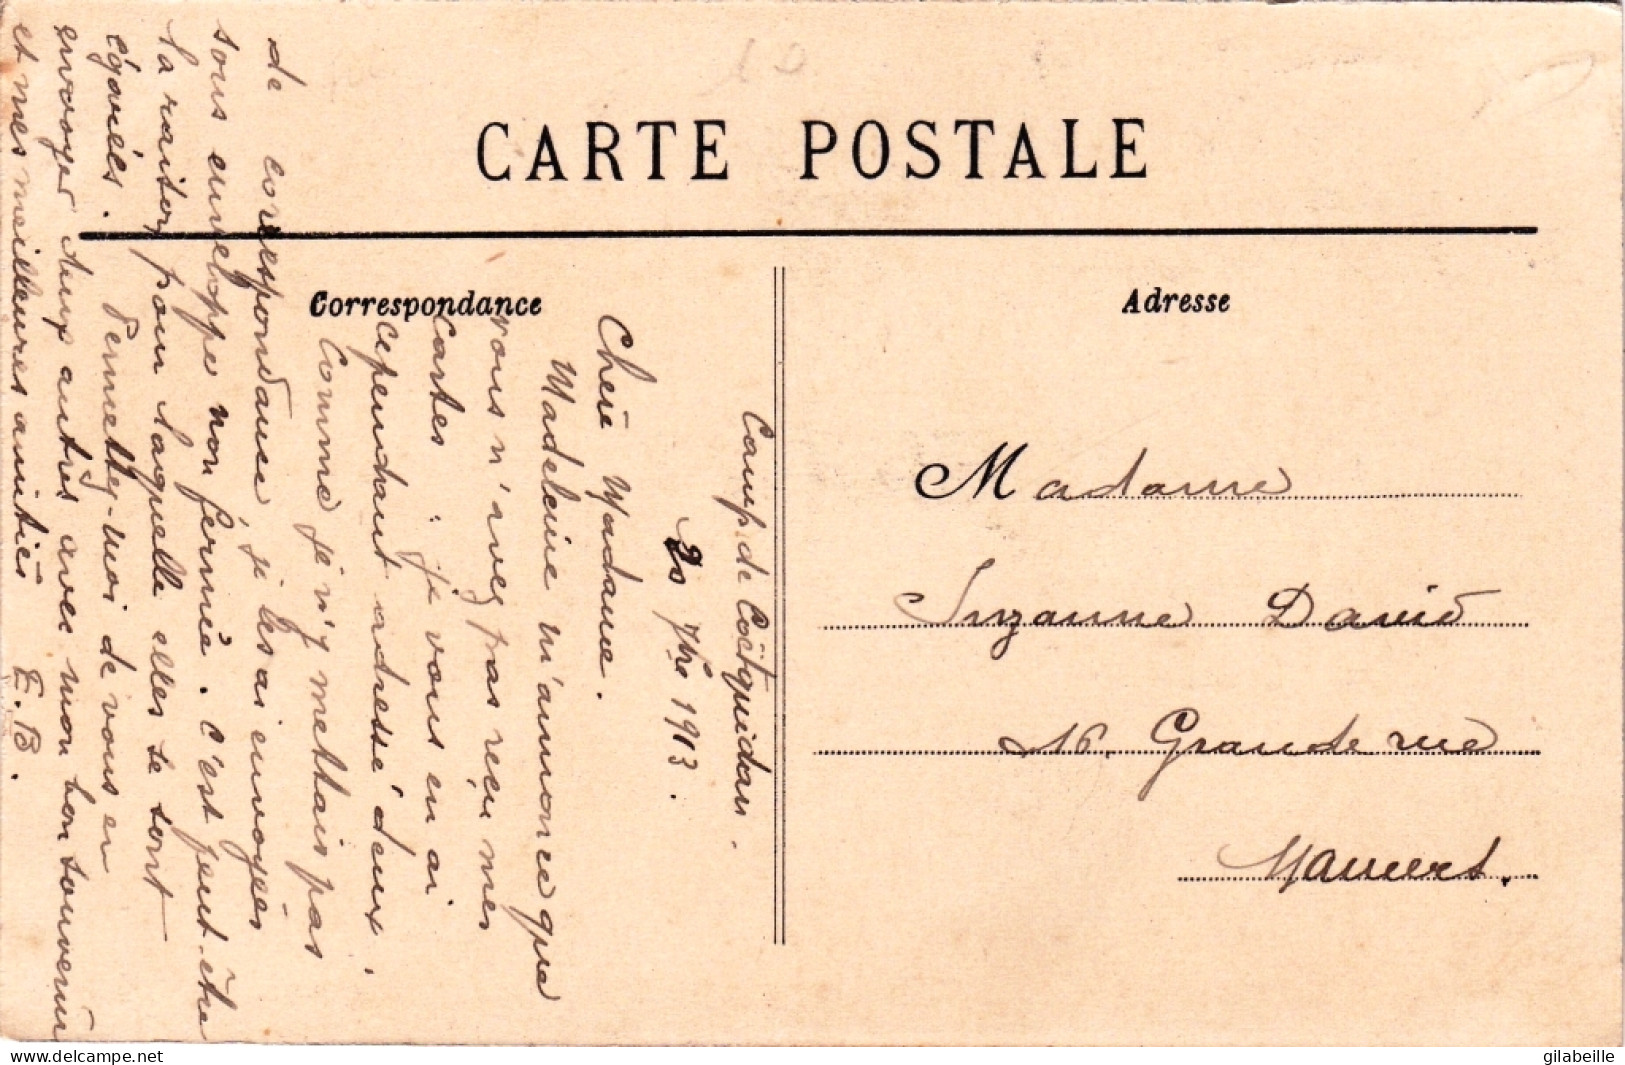 CARTE POSTALE
Correspondance
Adresse
Camp de Coëtquidan.
20 7bre 1913.
Chère Madame.
Madeleine m'annonce que
vous n'avez pas reçu mes
cartes : je vous en ai
cependant adressé deux.
Comme je n'y mettais pas
de correspondance je les ai envoyées
sous enveloppe non fermée. C'est peut-être
la raison pour laquelle elles se sont
égarées. Permettez-moi de vous en
envoyer deux autres avec mon bon souvenir
et mes meilleures amitiés E.B.
Madame
Suzanne David
16. Grande rue
Mamers.
delcampe.net
gilabeille